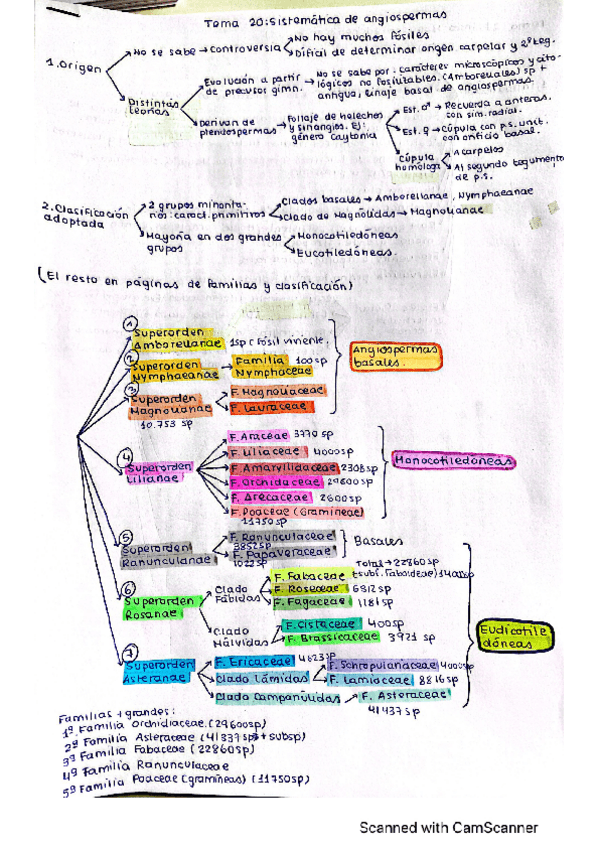 Tema 20: Sistemática de angiospermas
1. Origen
No se sabe → controversia
No hay muchos fósiles
Dificil de determinar origen carpelar y 2º teg.
Distintas teorías
Evolución a partir de precursor gimn.
No se sabe por: caracteres microscópicos y citológicos no fosilizables. (Amborellales) sp + antigua, linaje basal de angiospermas.
Derivan de pteridospermas
Follaje de helechos y sinangios. Ej: género Caytonia
Est. ♂ → Recuerda a anteras. con sim. radial.
Est. ♀ → Cúpula con p.s. unit. con orificio basal.
Cúpula homóloga
A carpelos
Al segundo tegumento de p.s.
2. Clasificación adoptada
2 grupos minoritarios: caract. primitivos
Clados basales → Amborellanae, Nymphaeanae
Clado de Magnólidas → Magnolianae
Mayoría en dos grandes grupos
Monocotiledóneas
Eucotiledóneas.
(El resto en páginas de familias y clasificación)
1
Superorden Amborellanae
1sp (fósil viviente.
2
Superorden Nymphaeanae
Familia Nymphaceae
100sp
3
Superorden Magnolianae
10.753 sp
F. Magnoliaceae
F. Lauraceae
Angiospermas basales.
4
Superorden Lilianae
F. Araceae 3770 sp
F. Liliaceae 4000sp
F. Amaryllidaceae 2308sp
F. Orchidaceae 29600sp
F. Arecaceae 2600sp
F. Poaceae (Gramineae)
11750sp
Monocotiledóneas
5
Superorden Ranunculanae
F. Ranunculaceae
3852sp
F. Papaveraceae
1022sp
Basales
6
Superorden Rosanae
Clado Fábidas
Total → 22860sp
F. Fabaceae
F. Roseceae 6312sp
F. Fagaceae 1181sp
Clado Málvidas
F. Cistaceae 400sp
F. Brassicaceae 3921 sp
7
Superorden Asteranae
F. Ericaceae 4623sp
Clado Lámidas
F. Schropulariaceae 4000sp
F. Lamiaceae 8816sp
Clado Campanúlidas → F. Asteraceae
41437sp
Eudicotiledóneas
Familias + grandes:
1º Familia Orchidiaceae. (29600sp)
2º Familia Asteraceae (41337sp + subsp)
3º Familia Fabaceae (22860sp)
4º Familia Ranunculaceae
5º Familia Poaceae (gramíneas) (11750sp)
Scanned with CamScanner